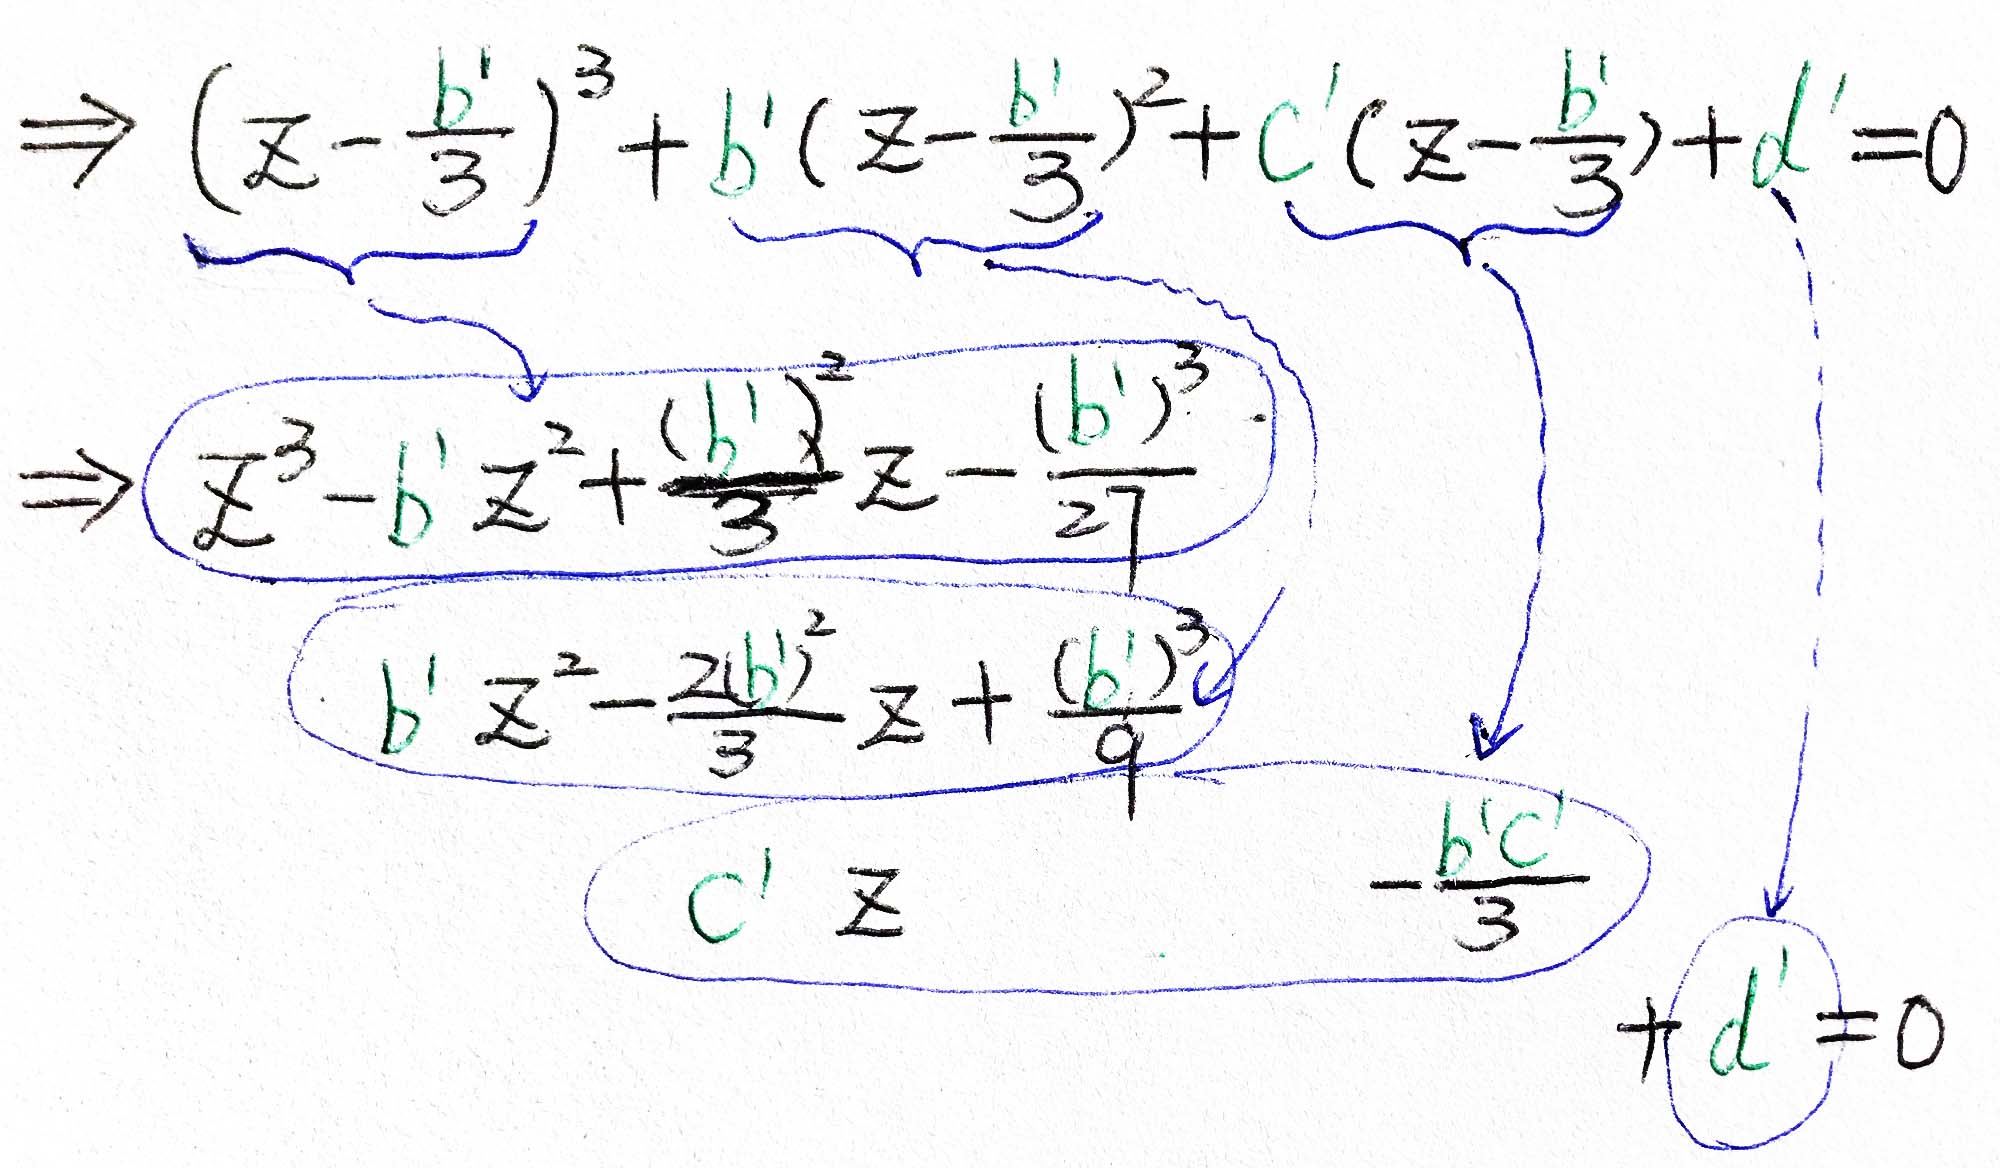 ⇒ (z - b'/3)³ + b'(z - b'/3)² + c'(z - b'/3) + d' = 0
⇒ z³ - b' z² + (b')²/3 z - (b')³/27
b' z² - 2(b')²/3 z + (b')³/9
c' z - b'c'/3
+ d' = 0